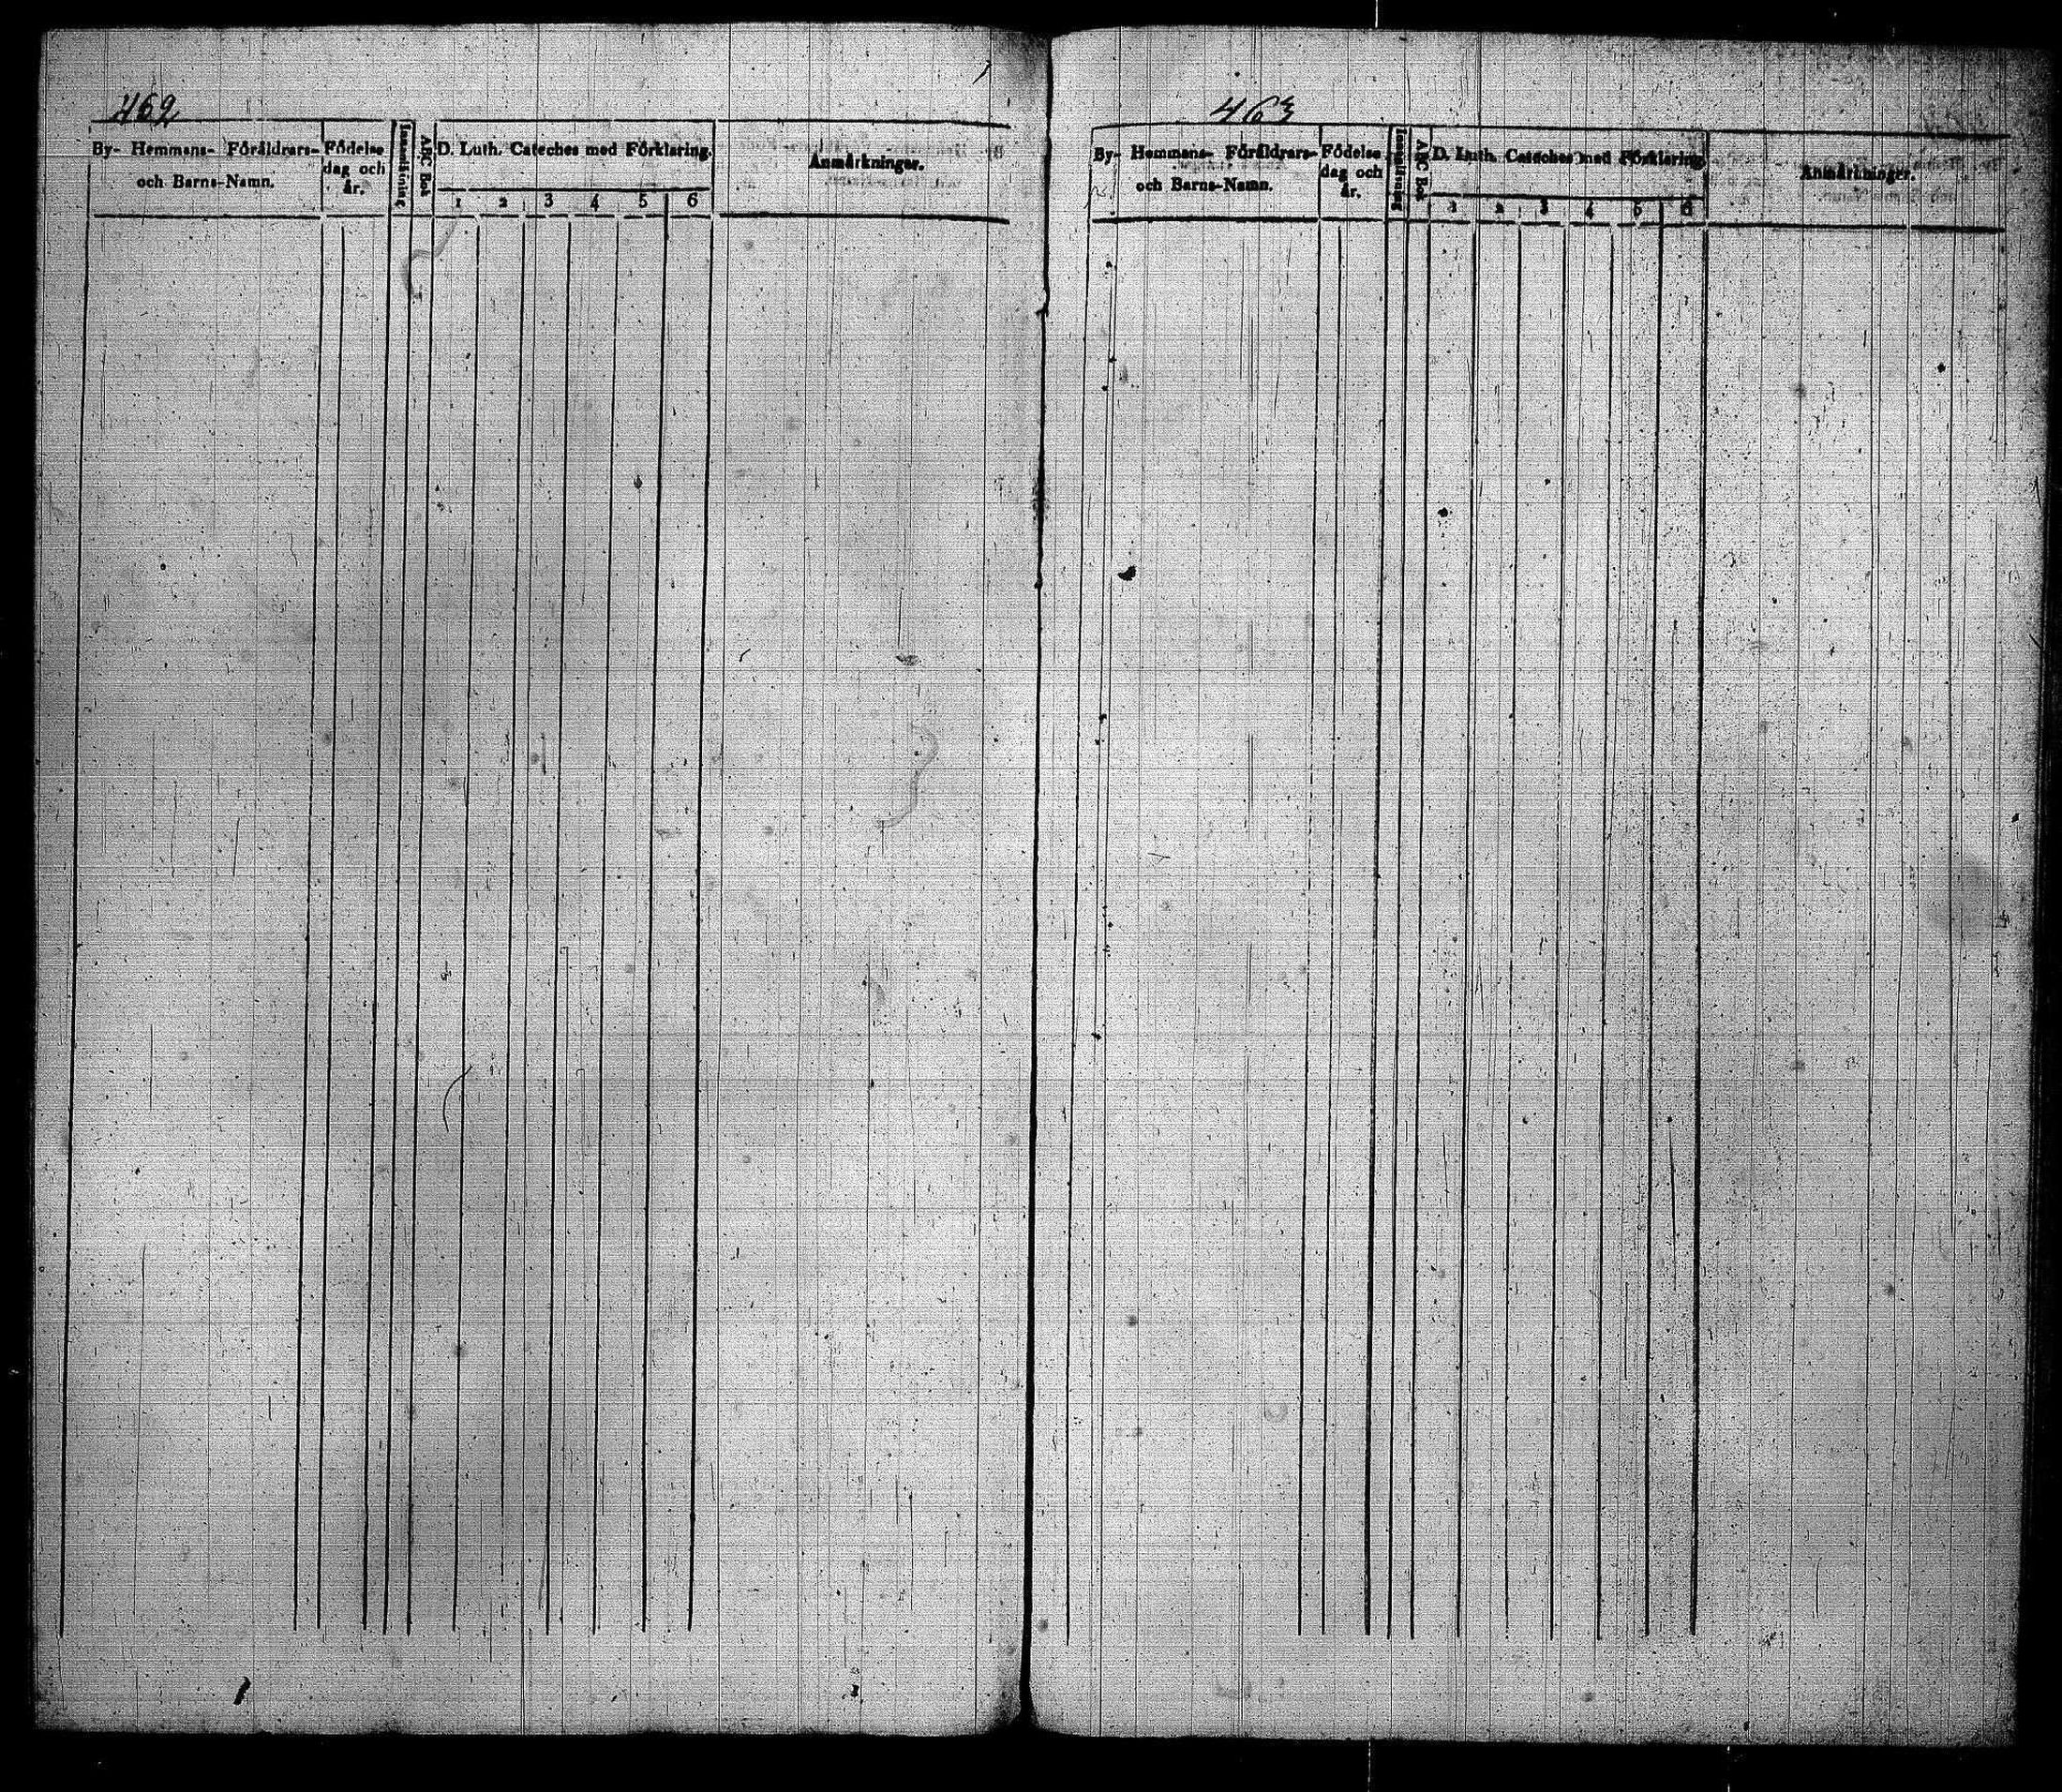 462
By- Hemmans- Föräldrars-
och Barns-Namn.
Födelse
dag och
år.
Innanläsning
ABC Bok
D. Luth. Cateches med Förklaring.
1 2 3 4 5 6
Anmärkninger.
463
By- Hemmans- Föräldrars-
och Barns-Namn.
Födelse
dag och
år.
Innanläsning
ABC Bok
D. Luth. Cateches med Förklaring.
1 2 3 4 5 6
Anmärkninger.